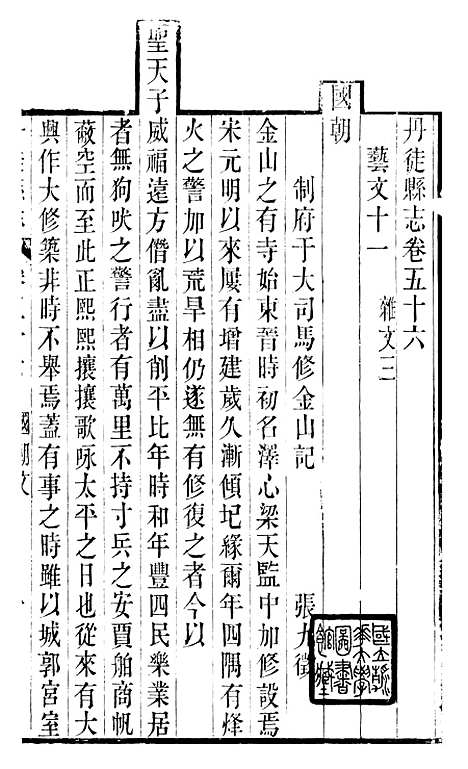 丹徒縣志卷五十六
藝文十一 雜文三
國朝
制府于大司馬修金山記 張九徵
金山之有寺始東晉時初名澤心梁天監中加修設焉
宋元明以來屢有增建歲久漸傾圮緣爾年四隅有烽
火之警加以荒旱相仍遂無有修復之者今以
聖天子威福遠方僭亂盡以削平比年時和年豐四民樂業居
者無狗吠之警行者有萬里不持寸兵之安賈舶商帆
蔽空而至此正熙熙攘攘歌咏太平之日也從來有大
興作大修築非時不舉焉蓋有事之時雖以城郭宮室
國朝文